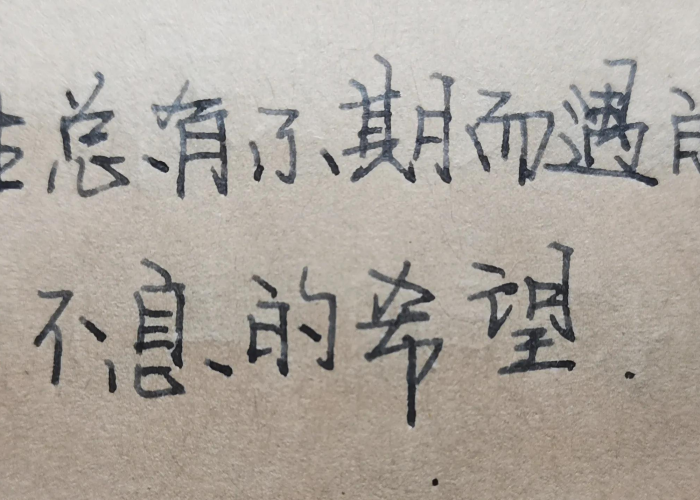 总有不期而遇的
不息的希望.